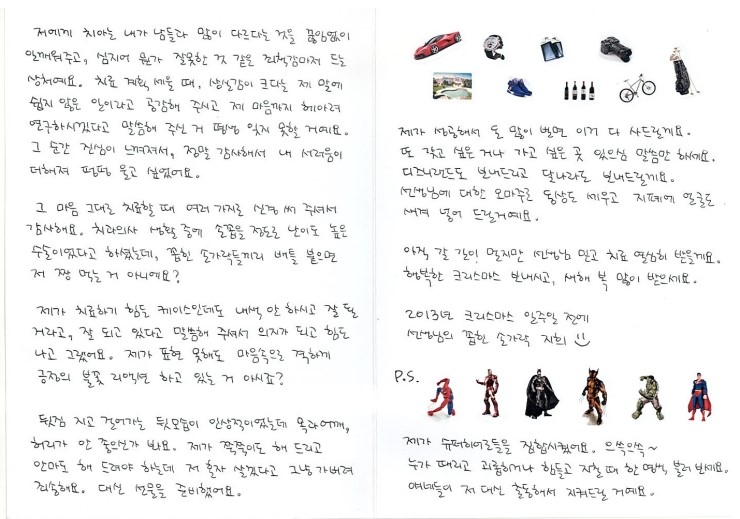 저에게 치아는 내가 남들과 많이 다르다는 것을 끊임없이
일깨워주고, 심지어 뭔가 잘못한 것 같은 죄책감마저 드는
상처예요. 치료 계획 세울 때, 상실감이 크다는 제 말에
쉽지 않은 일이라고 공감해 주시고 제 마음까지 헤아려
연구하시겠다고 말씀해 주신 거 평생 잊지 못할 거예요.
그 순간 진심이 느껴져서, 정말 감사해서 내 서러움이
더해져 펑펑 울고 싶었어요.
그 마음 그대로 치료할 때 여러 가지로 신경 써 주셔서
감사해요. 치과의사 생활 중에 손꼽을 정도로 난이도 높은
수술이었다고 하셨는데, 꼽힌 손가락들끼리 배틀 붙으면
저 짱 먹는 거 아니에요?
제가 치료하기 힘든 케이스인데도 내색 안 하시고 잘 될
거라고, 잘 되고 있다고 말씀해 주셔서 의지가 되고 힘도
나고 그랬어요. 제가 표현 못해도 마음속으로 격하게
긍정의 불꽃 리액션 하고 있는 거 아시죠?
뒷짐 지고 걸어가는 뒷모습이 인상적이었는데 목과 어깨,
허리가 안 좋으신가 봐요. 제가 쭉쭉이도 해 드리고
안마도 해 드려야 하는데 저 혼자 살겠다고 그냥 가버려
죄송해요. 대신 선물을 준비했어요.
제가 성공해서 돈 많이 벌면 이거 다 사드릴게요.
또 갖고 싶은 거나 가고 싶은 곳 있으심 말씀만 하세요.
디즈니랜드도 보내드리고 달나라도 보내드릴게요.
선생님에 대한 오마주로 동상도 세우고 지폐에 얼굴도
새겨 넣어 드릴거예요.
아직 갈 길이 멀지만 선생님 믿고 치료 열심히 받을게요.
행복한 크리스마스 보내시고, 새해 복 많이 받으세요.
2013년 크리스마스 일주일 전에
선생님의 꼽힌 손가락 지희
P.S.
제가 슈퍼히어로들을 집합시켰어요. 으쓱으쓱~
누가 때리고 괴롭히거나 힘들고 지칠 때 한 명씩, 불러 보세요.
얘네들이 저 대신 출동해서 지켜드릴 거예요.